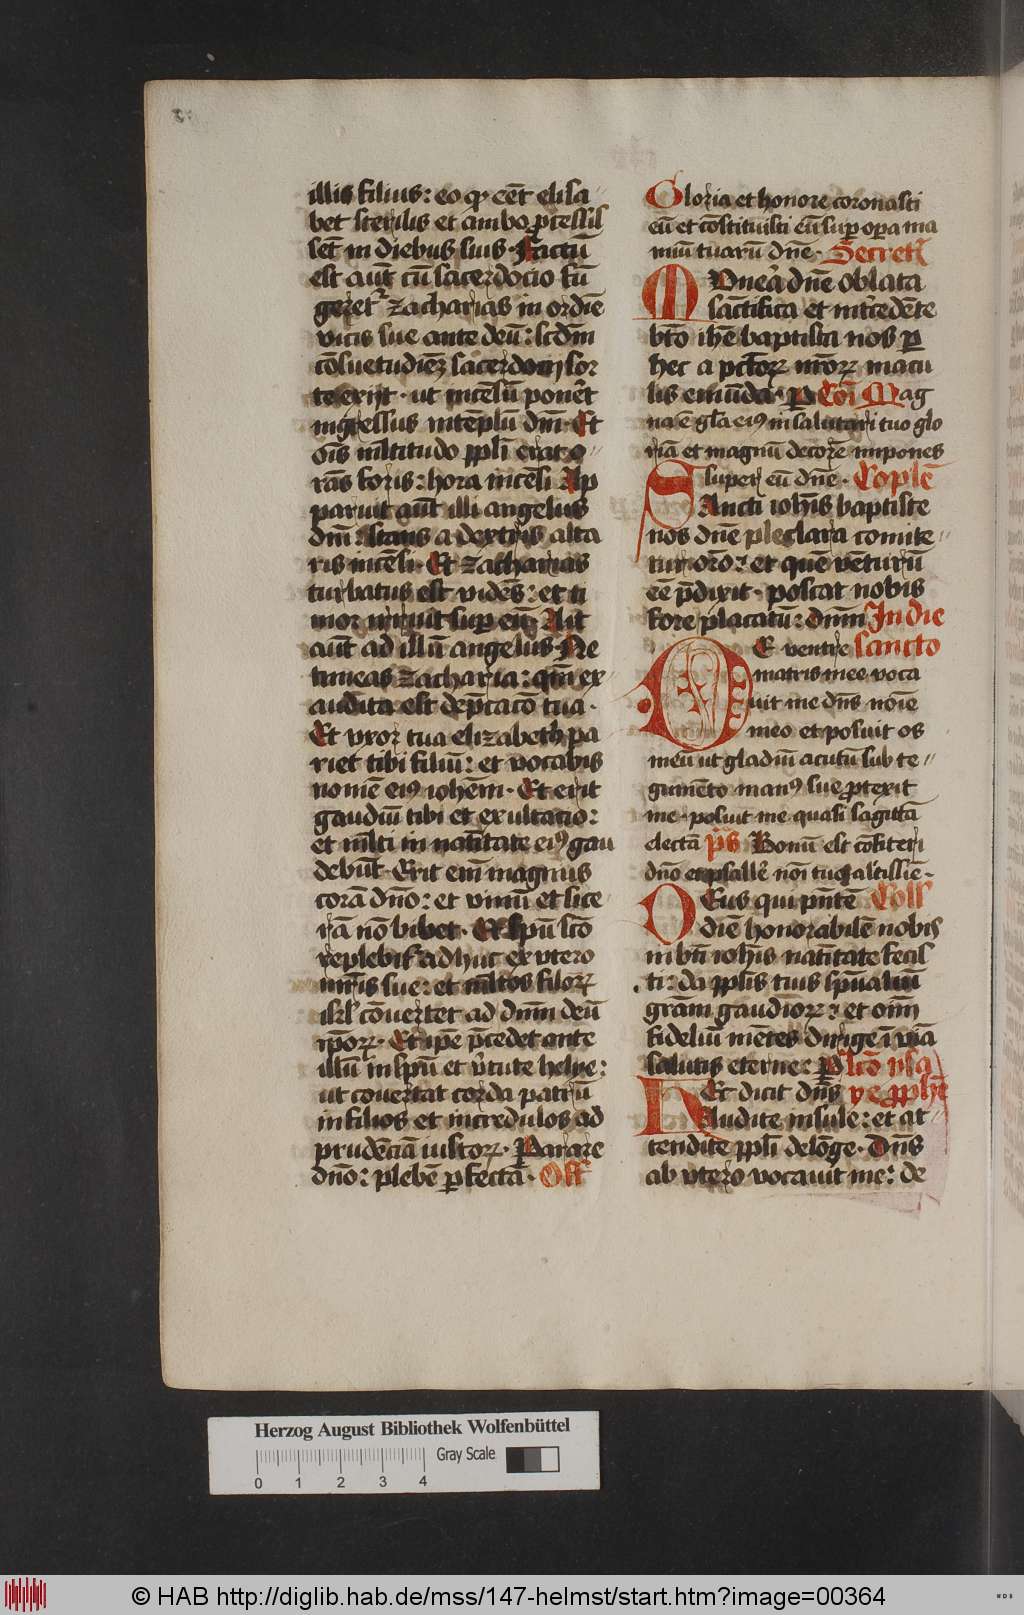 illis filius: eo qꝫ eēt elisa
bet sterilis et ambo ꝓcessis
sēt in diebus suis. Factū
est aūt cū sacerdocio fū
geretᷣ zacharias in ordīe
vicis sue ante deū: scdm̄
cōsuetudīeꝫ sacerdocij sor
te exijt. ut incēsū ponēt
ingressus intēplū dm̄. Et
oīs mltitudo ppli erat o
rās foris: hora incēsi Ap
paruit aūt illi angelus
dm̄: stans a dextris alta
ris incēsi. Et zacharias
turbatus est vidēs: et ti
mor irruit sup eū. Ait
aūt ad illū angelus. Ne
timeas zacharia: qm̄ ex
audita est dep̄cacō tua.
Et vxor tua elizabeth pa
riet tibi filiū: et vocabis
nomē eiꝰ iohēm. Et erit
gaudiū tibi et exultatio:
et mlti in natītate eiꝰ gau
debūt. Erit em̄ magnus
corā dno: et vinū et sice
rā nō bibet. Et spū sc̄o
replebitᷣ adhuc ex vtero
mr̄is sue: et mltos filoꝝ
isrl cōvertet ad dnm̄ deū
ip̄oꝝ. Et ipē p̄cedet ante
illū in spū et v̄tute helye:
ut cōvertat corda patrū
in filios et incredulos ad
prudēciā iustoꝝ. Parare
dno: plebē ꝑfectā. Off
Gloria et honore coronasti
eū et cōstituisti eū sup opa ma
nuū tuarū dne. Secret
Munera dne oblata
sāctifica et int̄cedēte
bto ihe baptista nos ꝑ
hec a pctoꝝ nr̄oꝝ macu
lis emūda. ꝑ Coī Mag
na ē gl̄a eiꝰ in salutari tuo glo
riā et magnū decorē impones
super eū dne. Coplē
Sancti iohis baptiste
nos dne p̄clara comite
tur orō: et quē vēturū
eē p̄dixit. poscat nobis
fore placatū: dnm̄ In die
De ventre sancto
matris mee voca
uit me dns noīe
meo et posuit os
meū ut gladiū acutū sub te
gumēto manꝰ sue ꝓtexit
me. posuit me quasi sagittā
electā ps Bonū est cōfiteri
dno et psallē noī tuo altissīe.
Deus qui pn̄tē Coll
diē honorabilē nobis
in bti iohis natītate fecis
ti: da pplis tuis sp̄ualiū
grām gaudioꝝ: et oīm
fideliū mētes dirige ī viā
salutis eterne: ꝑ Lc̄o ysa
Hec dicit dns ye ꝓphē
Audite insule: et at
tendite ppli delōge. Dns
ab vtero vocavit me: de
Herzog August Bibliothek Wolfenbüttel
Gray Scale
0 1 2 3 4
© HAB http://diglib.hab.de/mss/147-helmst/start.htm?image=00364